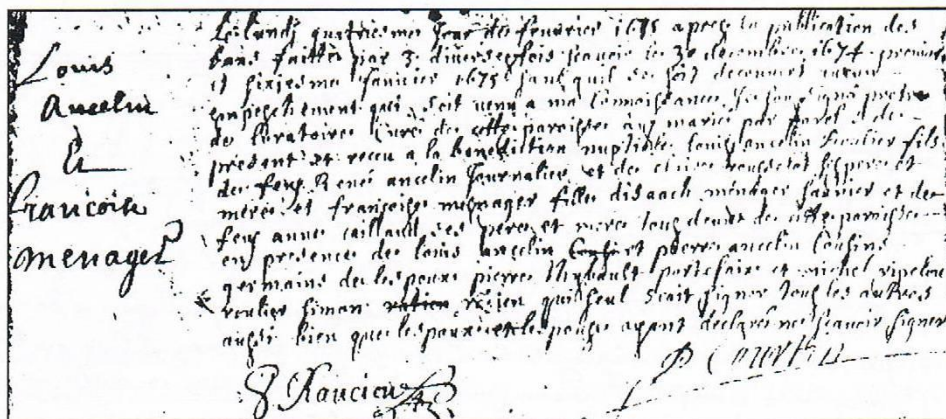 Louis
Ancelin
&
francoise
menager
Le lundy quatriesme jour de fevrier 1675 apres la publication des
bans faitte par 3 diverses fois scavoir le 30 decembre 1674 premier
et sixiesme janvier 1675 sans quil se soit decouvert aucun
empeschement qui soit venu a ma connoissance Je sousigné pretre
de loratoire curé de cette paroisse ay mariez par parol de
present et receu a la benediction nuptiale louis ancelin fils
de feu René ancelin Journalier et de ses pere et
mere et françoise menager fille disaack menager et de
feu anne caillaud ses pere et mere tous deux de cette paroisse
en presence de louis ancelin et pierre ancelin cousins
germains de lespoux pierre Thybault portefaix et michel
simon qui seul scait signer tous les autres
aussi bien que lespoux et lespouse ayant declaré ne scavoir signer